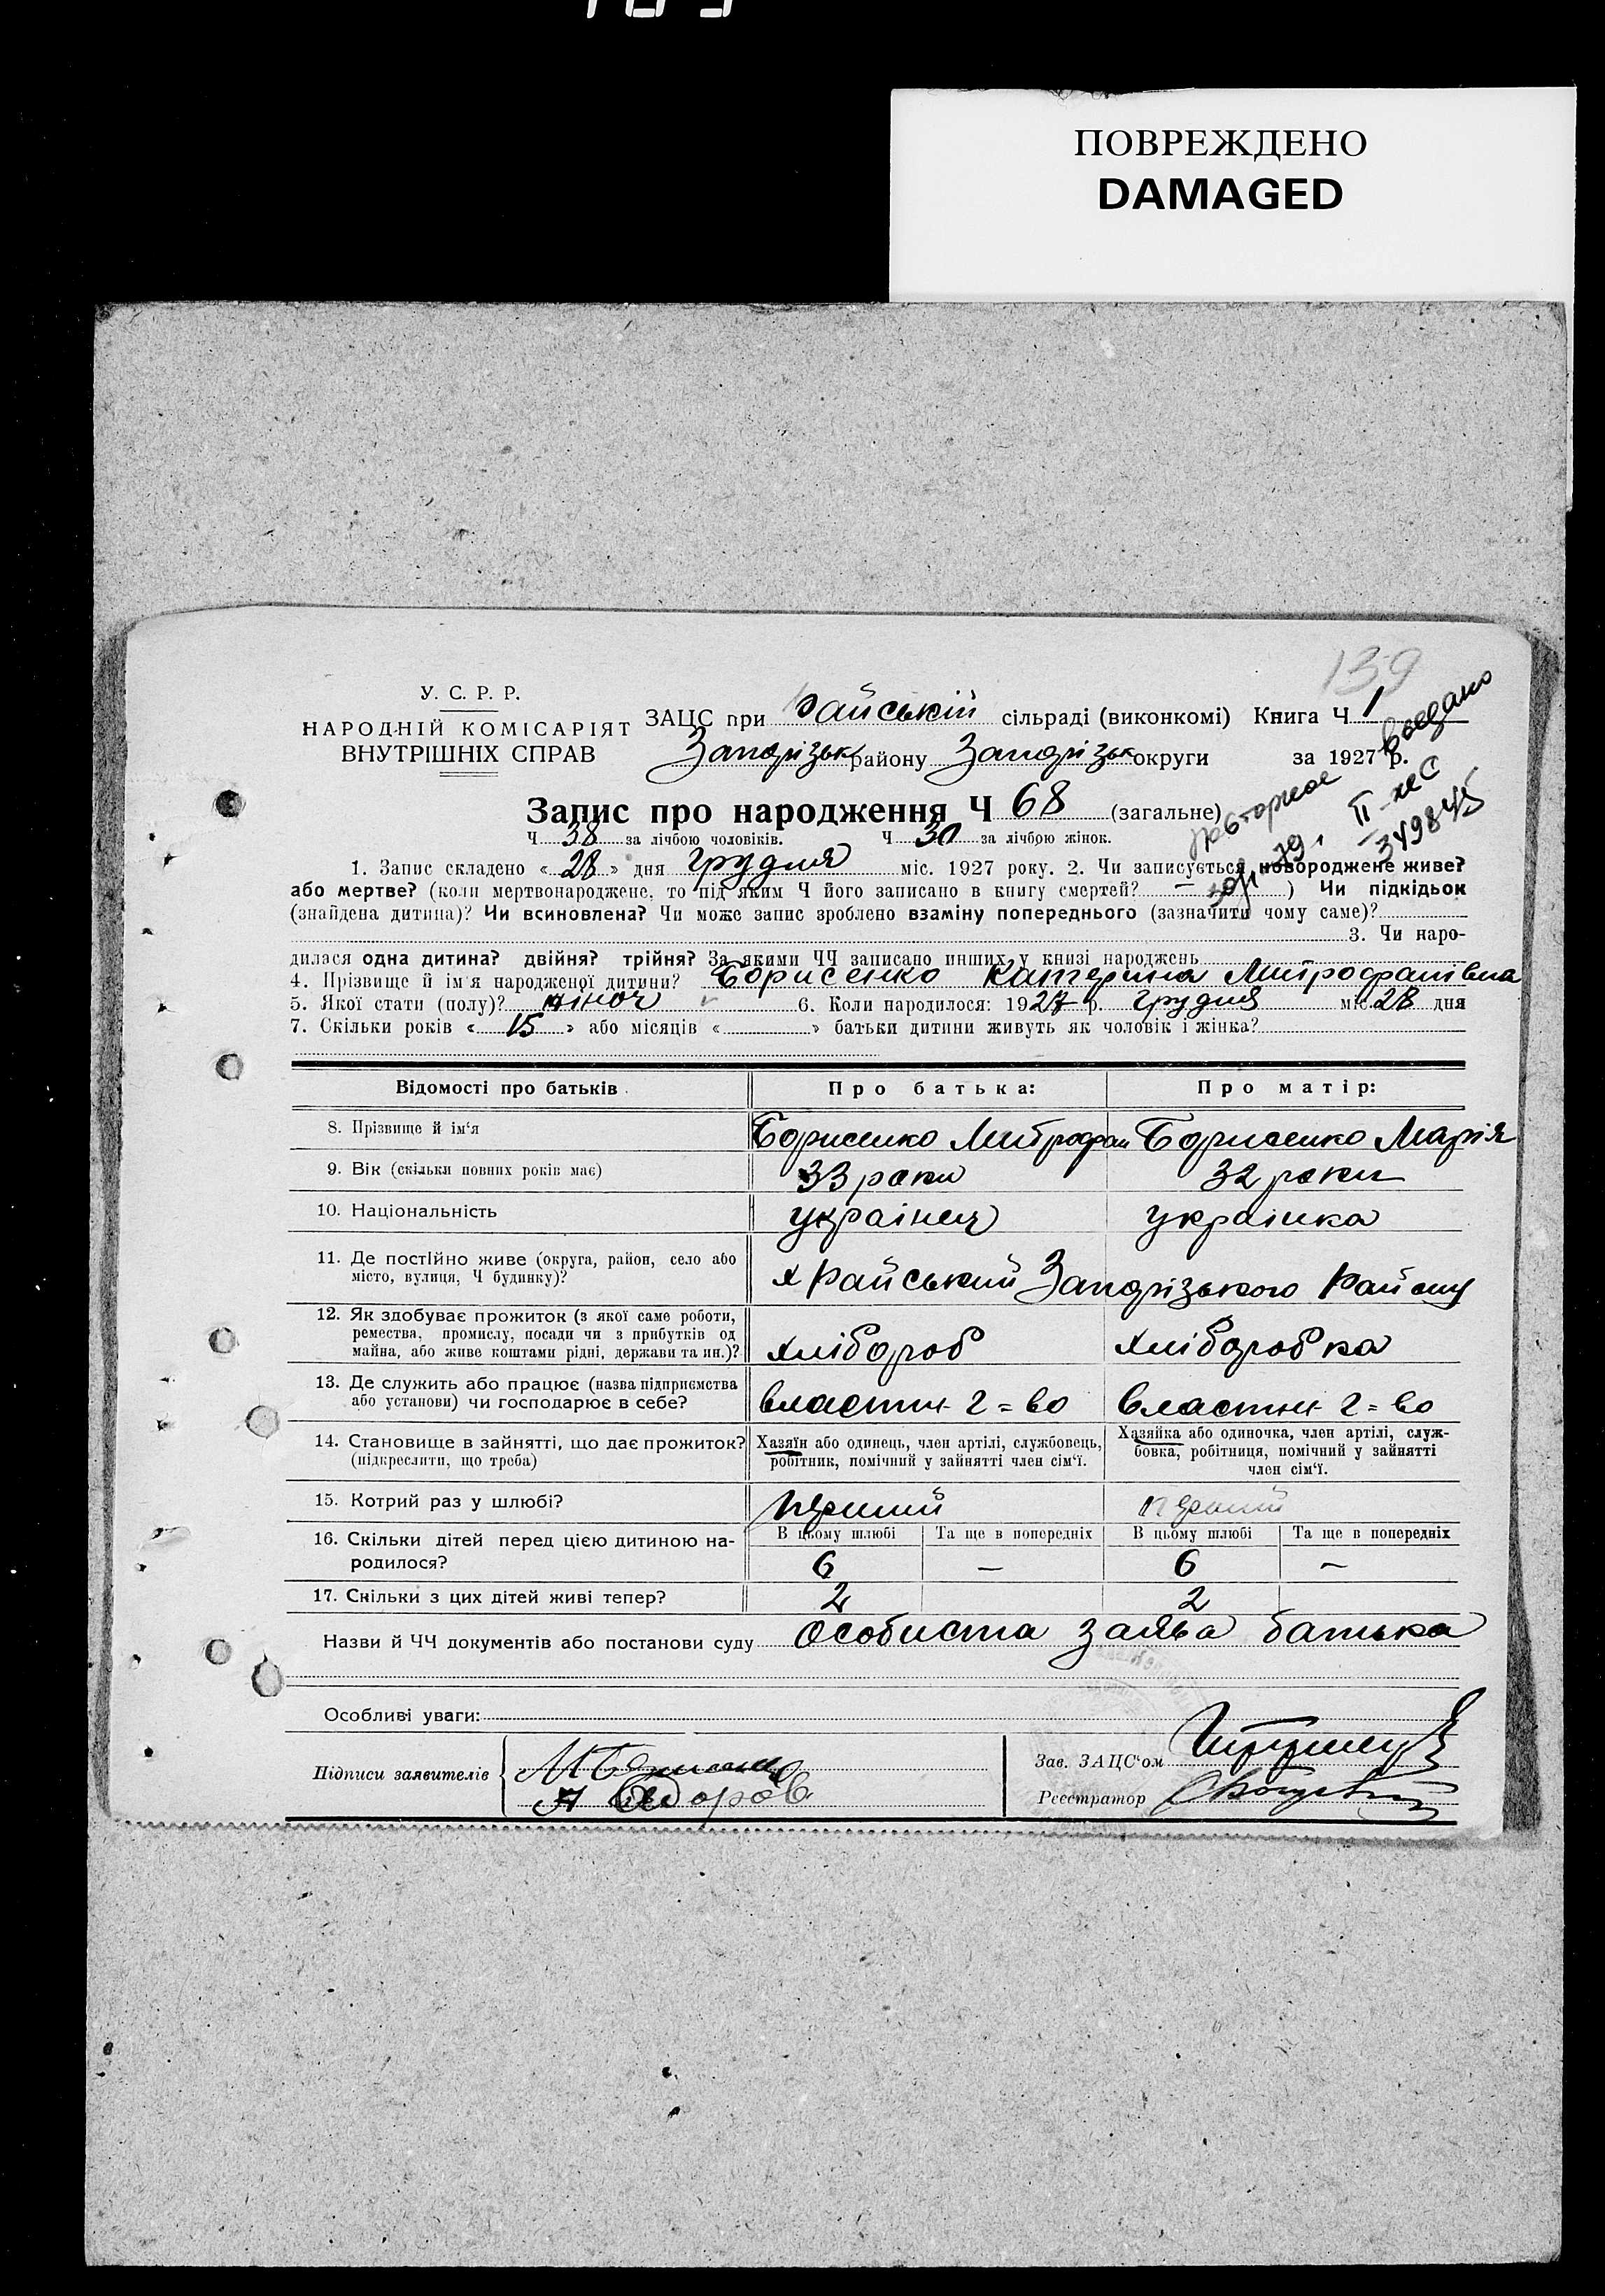 ПОВРЕЖДЕНО
DAMAGED
139
У. С. Р. Р.
НАРОДНІЙ КОМІСАРІЯТ
ВНУТРІШНІХ СПРАВ
ЗАЦС при Райській сільраді (виконкомі) Книга Ч 1
Запорізьк району Запорізьк округи за 1927 р.
повторное
выдано
II-ЖС
349845
Запис про народження Ч 68 (загальне)
Ч 38 за лічбою чоловіків. Ч 30 за лічбою жінок.
1. Запис складено «28» дня грудня міс. 1927 року. 2. Чи записується новороджене живе?
або мертве? (коли мертвонароджене, то під яким Ч його записано в книгу смертей? — ) Чи підкідьок
(знайдена дитина)? Чи всиновлена? Чи може запис зроблено взаміну попереднього (зазначити чому саме)?
3. Чи наро-
дилася одна дитина? двійня? трійня? За якими ЧЧ записано инших у книзі народжень
4. Прізвище й ім'я народженої дитини? Борисенко Катерина Митрофанівна
5. Якої стати (полу)? жіноч 6. Коли народилося: 1927 р. грудня міс. 28 дня
7. Скільки років «15» або місяців « » батьки дитини живуть як чоловік і жінка?
Відомості про батьків Про батька: Про матір:
8. Прізвище й ім'я Борисенко Митрофан Борисенко Марія
9. Вік (скільки повних років має) 33 роки 32 роки
10. Національність українец українка
11. Де постійно живе (округа, район, село або
місто, вулиця, Ч будинку)? х Райський Запорізького Району
12. Як здобуває прожиток (з якої саме роботи,
ремества, промислу, посади чи з прибутків од
майна, або живе коштами рідні, держави та ин.)? хлібороб хліборобка
13. Де служить або працює (назва підприємства
або установи) чи господарює в себе? власти г=во власти г=во
14. Становище в зайнятті, що дає прожиток?
(підкреслити, що треба)
Хазяїн або одинець, член артілі, службовець,
робітник, помічний у зайнятті член сім'ї.
Хазяйка або одиночка, член артілі, служ-
бовка, робітниця, помічний у зайнятті
член сім'ї.
15. Котрий раз у шлюбі? перший перший
16. Скільки дітей перед цією дитиною на-
родилося?
В цьому шлюбі Та ще в попередніх В цьому шлюбі Та ще в попередніх
6 — 6 —
17. Скільки з цих дітей живі тепер? 2 2
Назви й ЧЧ документів або постанови суду особиста заява батька
Особливі уваги:
Підписи заявителів
Зав. ЗАЦС'ом
Реєстратор